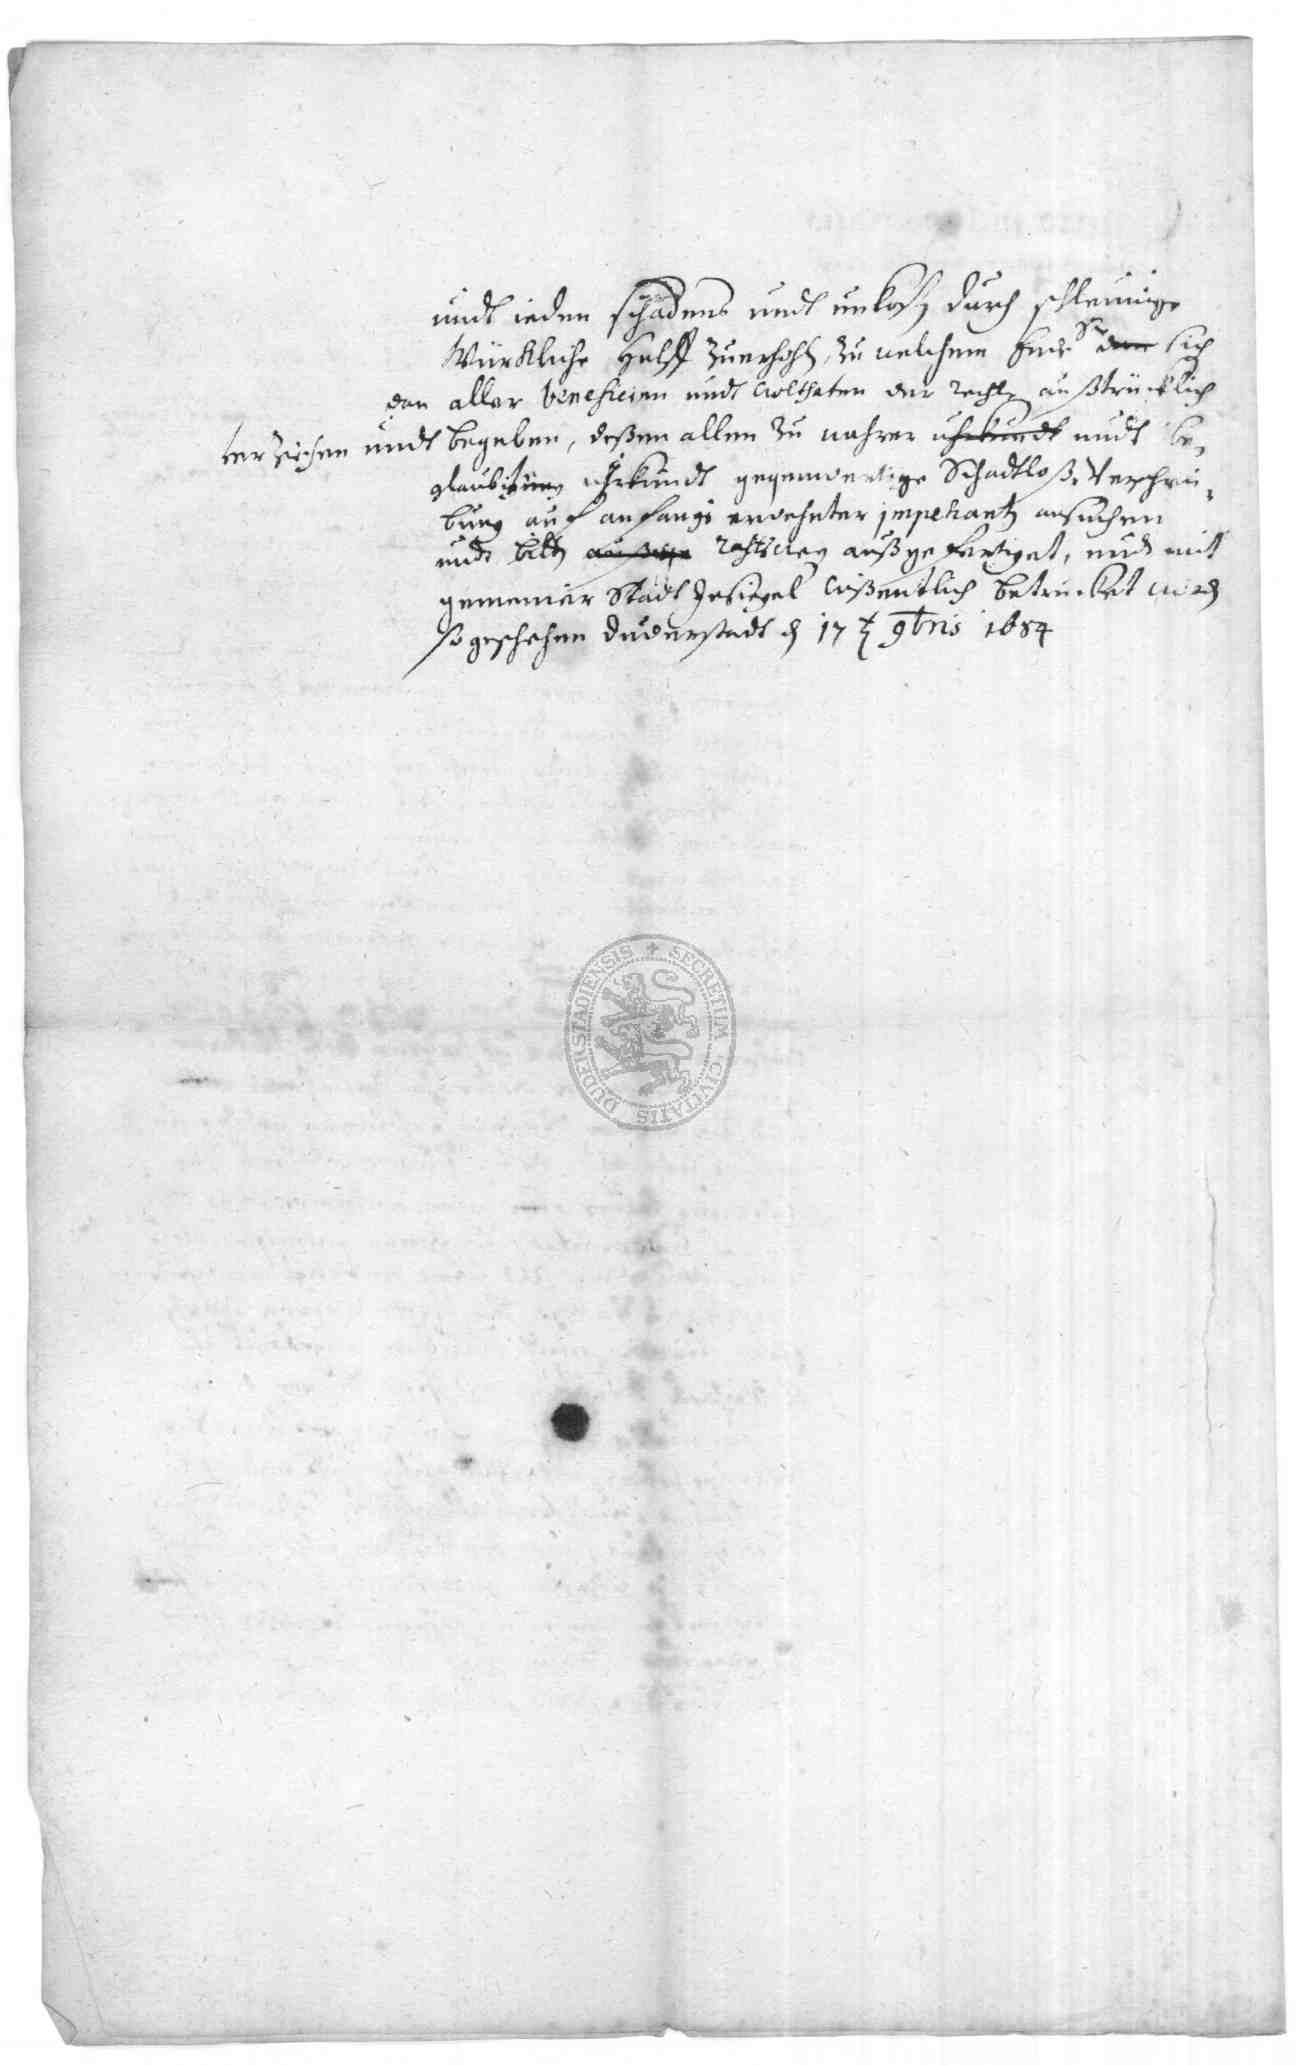 undt ieden schadens undt unkosten durch schleunige
Würkliche Hulff zuerhohlen, zu welchem Ende Sie dan sich
dan aller beneficien undt wolthaten der rechten außtrücklich
verzeichen undt begeben, deßen allen zu wahrer uhrkundt undt be„
glaubigung uhrkundt gegenwertige Schadtloß Verschrei„
bung auf anfangs erwehnter impetranten ansuchen
undt bitten außge rahtswegen außgefertiget, undt mit
gemeiner Stadt Insiegel wißentlich betrucket worden
so geschehen Duderstadt d 17 t 9bris 1684
SECRETUM CIVITATIS DUDERSTADIENSIS